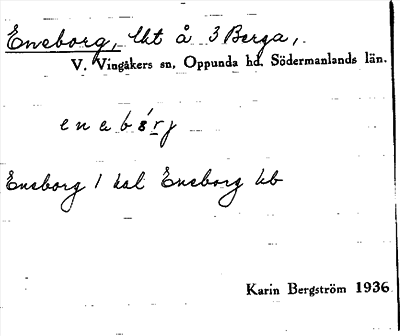 Eneborg, lht å 3 Berga,
V. Vingåkers sn, Oppunda hd. Södermanlands län.
Eneborg 1 hsl Eneborg kb
Karin Bergström 1936